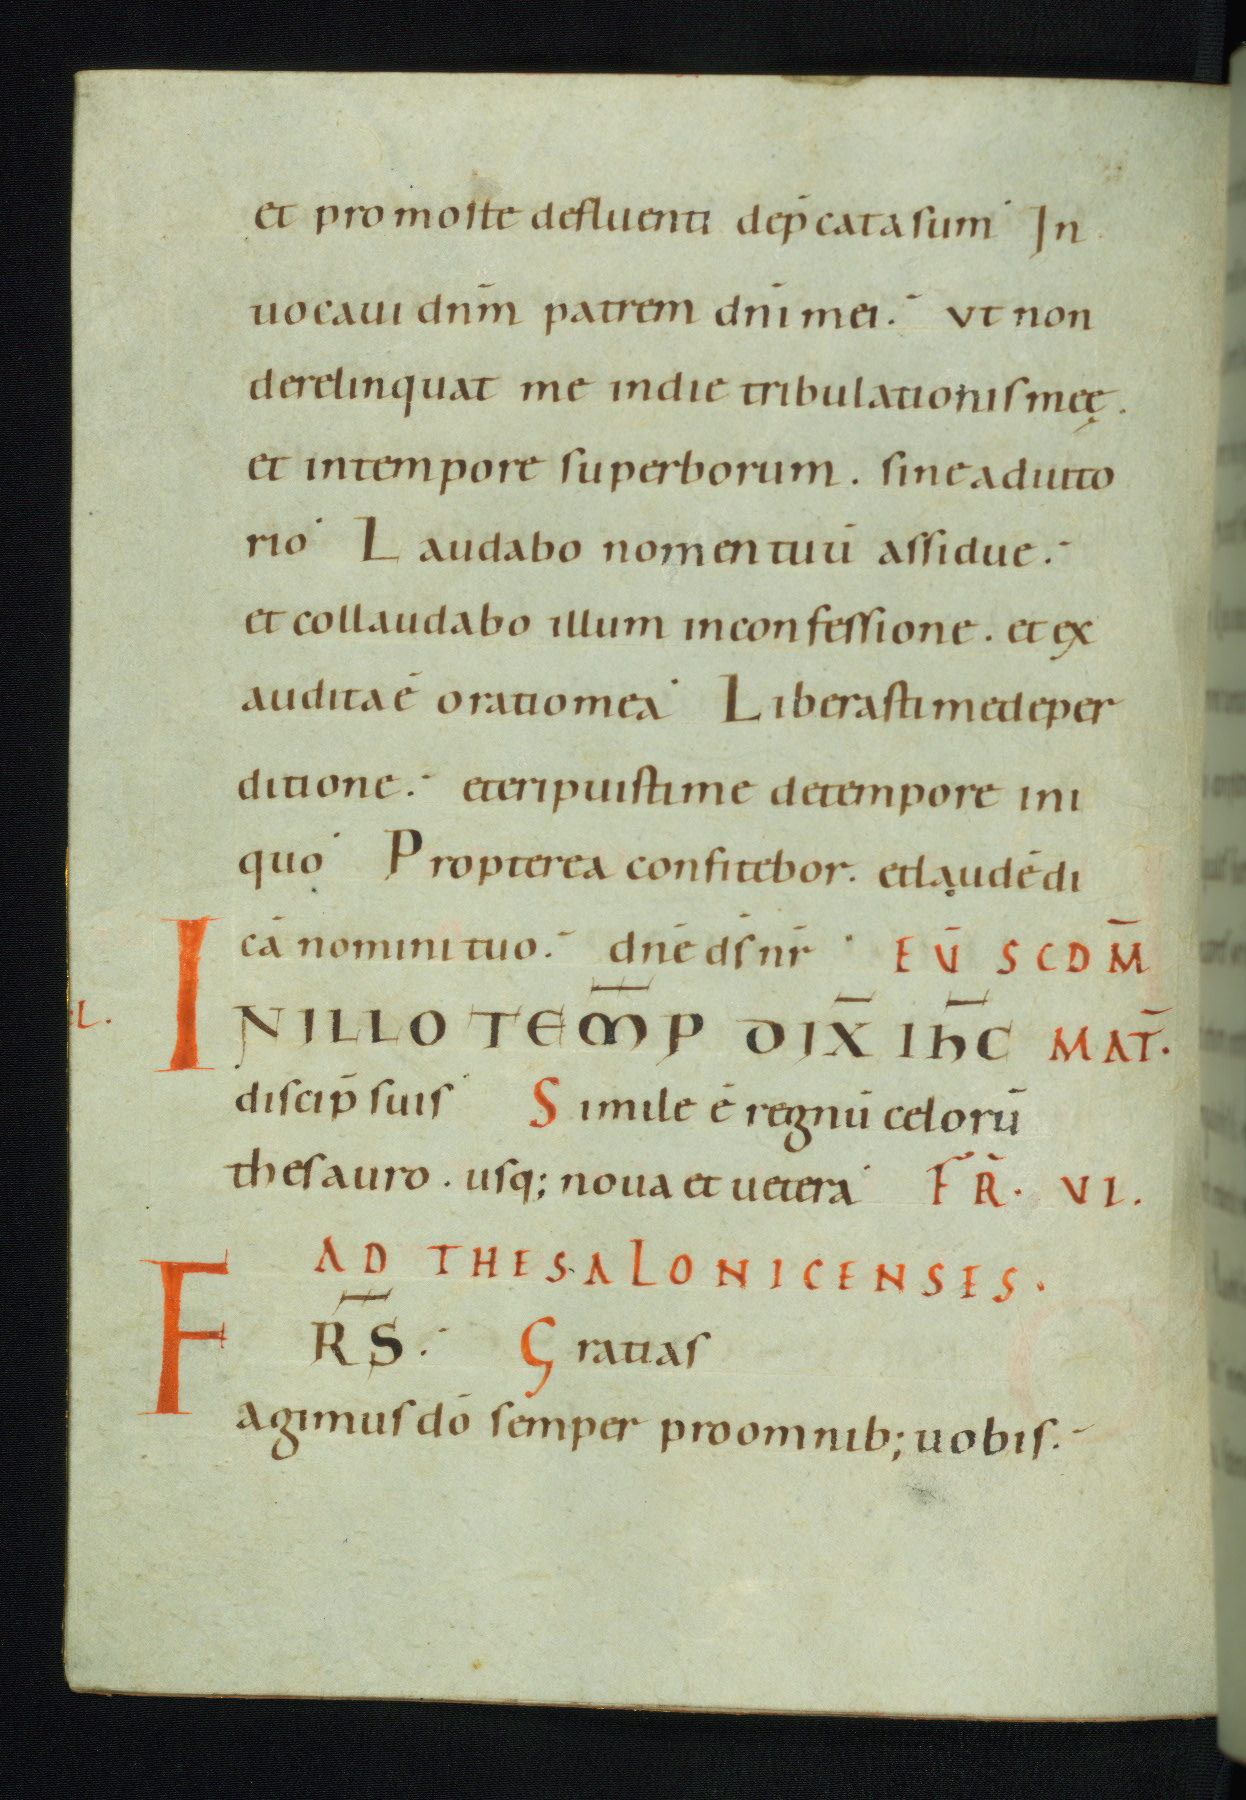 et pro morte defluenti dep̄cata sum In
uocaui dnm̄ patrem dnī mei. Vt non
derelinquat me in die tribulationis meę.
et in tempore superborum. sine adiuto
rio Laudabo nomen tuū assidue.
et collaudabo illum in confessione. et ex
audita ē oratio mea Liberasti me de per
ditione. et eripuisti me de tempore ini
quo Propterea confitebor. et laudē di
cā nomini tuo. dnē ds̄ nr̄ EV̄ SCDM̄
L. IN ILLO TEM̄P DIX̄ IHC̄ MAT̄.
discip̄ suis Simile ē regnū celorū
thesauro. usq; noua et uetera FR̄. VI.
AD THESALONICENSES.
FRS̄. Gratias
agimus dō semper pro omnib; uobis.